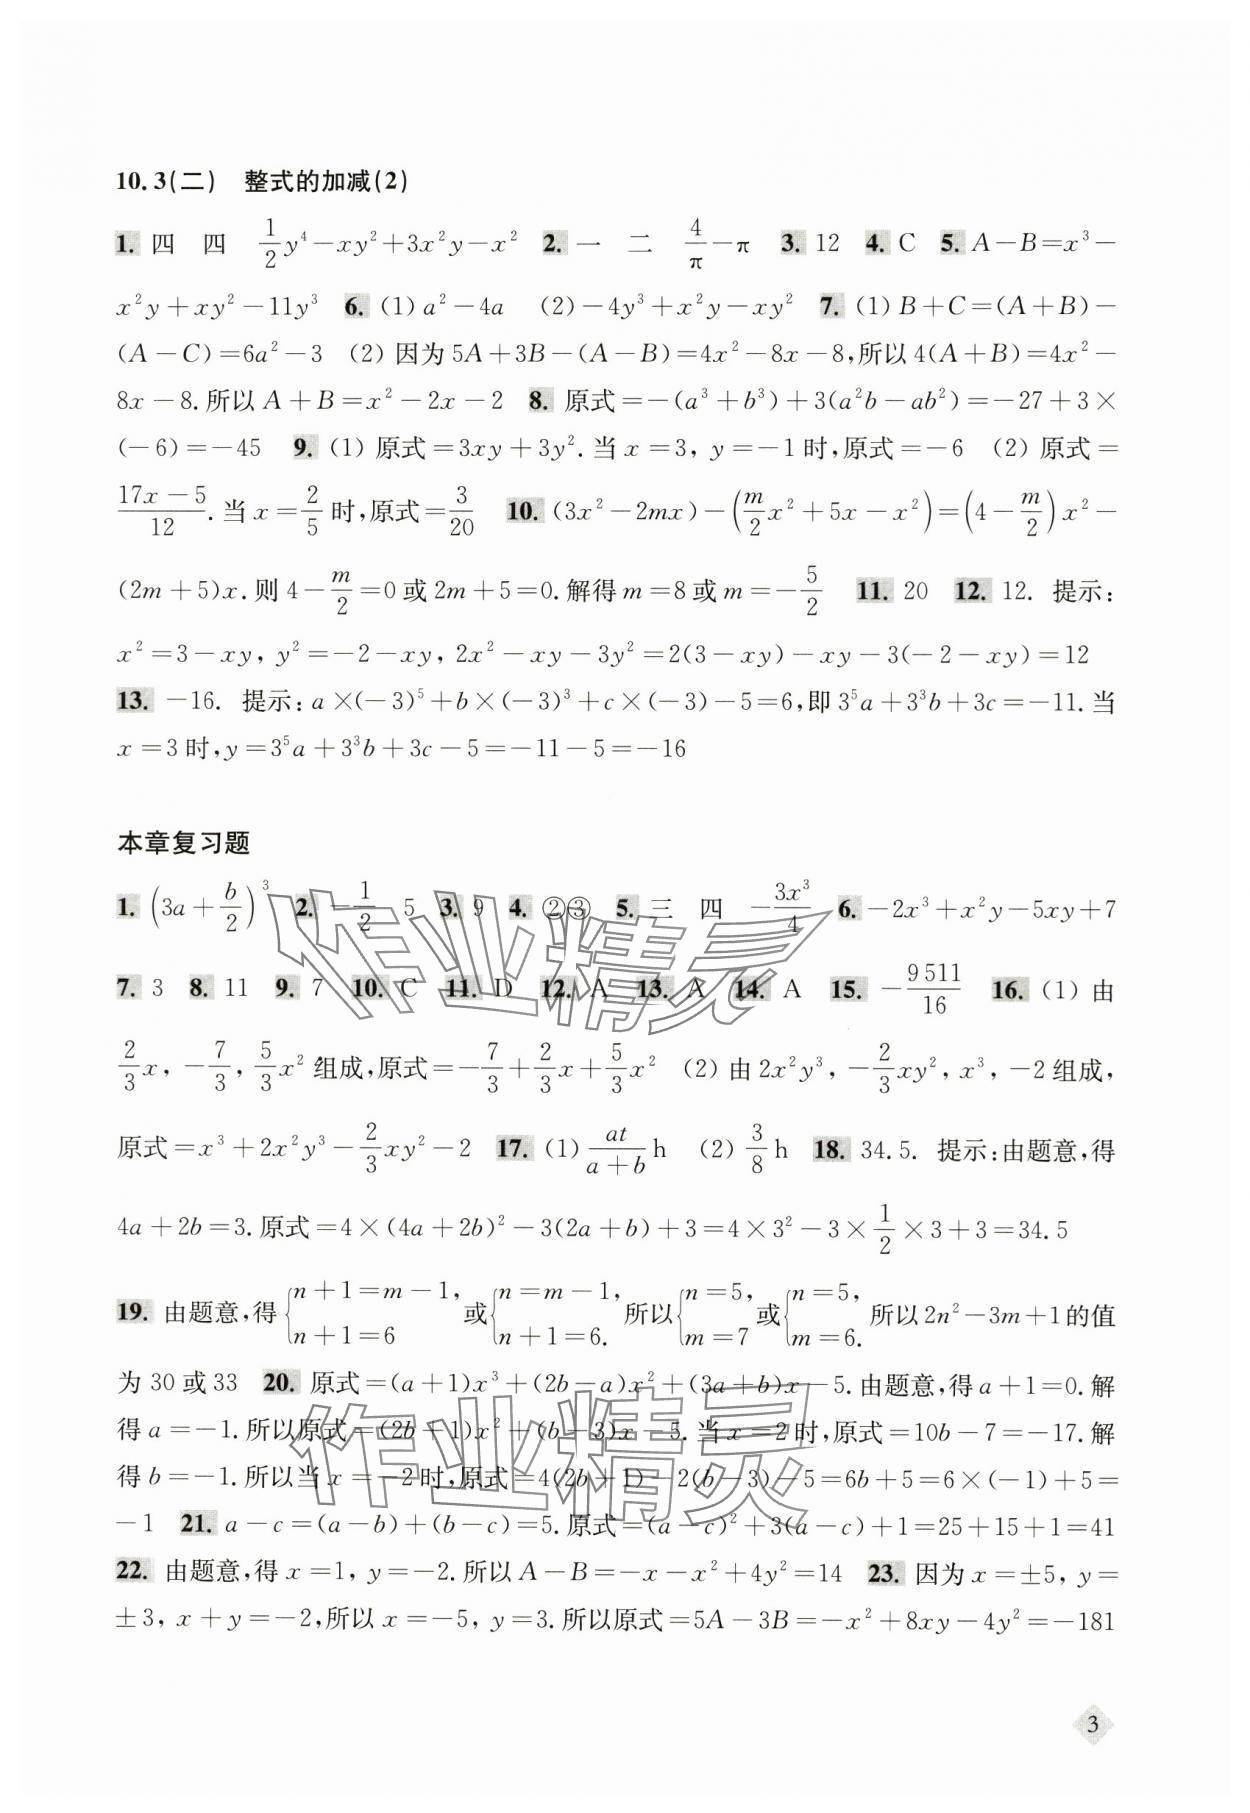 10.3(二) 整式的加减(2)
1. 四 四 \frac{1}{2}y⁴-xy²+3x²y-x² 2. 一 二 \frac{4}{π}-π 3. 12 4. C 5. A-B=x³-
x²y+xy²-11y³ 6. (1) a²-4a (2) -4y³+x²y-xy² 7. (1) B+C=(A+B)-
(A-C)=6a²-3 (2) 因为 5A+3B-(A-B)=4x²-8x-8,所以 4(A+B)=4x²-
8x-8.所以 A+B=x²-2x-2 8. 原式=-(a³+b³)+3(a²b-ab²)=-27+3×
(-6)=-45 9. (1) 原式=3xy+3y². 当 x=3, y=-1 时,原式=-6 (2) 原式=
\frac{17x-5}{12}.当 x=\frac{2}{5}时,原式=\frac{3}{20} 10. (3x²-2mx)-(\frac{m}{2}x²+5x-x²)=(4-\frac{m}{2})x²-
(2m+5)x.则 4-\frac{m}{2}=0或 2m+5=0.解得 m=8或 m=-\frac{5}{2} 11. 20 12. 12. 提示:
x²=3-xy, y²=-2-xy, 2x²-xy-3y²=2(3-xy)-xy-3(-2-xy)=12
13. -16. 提示: a×(-3)⁵+b×(-3)³+c×(-3)-5=6,即 3⁵a+3³b+3c=-11.当
x=3 时,y=3⁵a+3³b+3c-5=-11-5=-16
本章复习题
1. (3a+\frac{b}{2})³ 2. -\frac{1}{2} 5 3. 9 4. ②③ 5. 三 四 -\frac{3x³}{4} 6. -2x³+x²y-5xy+7
7. 3 8. 11 9. 7 10. C 11. D 12. A 13. A 14. A 15. -\frac{9511}{16} 16. (1) 由
\frac{2}{3}x, -\frac{7}{3}, \frac{5}{3}x² 组成,原式=-\frac{7}{3}+\frac{2}{3}x+\frac{5}{3}x² (2) 由 2x²y³, -\frac{2}{3}xy², x³, -2 组成,
原式=x³+2x²y³-\frac{2}{3}xy²-2 17. (1) \frac{at}{a+b}h (2) \frac{3}{8}h 18. 34.5. 提示:由题意,得
4a+2b=3.原式=4×(4a+2b)²-3(2a+b)+3=4×3²-3×\frac{1}{2}×3+3=34.5
19. 由题意,得{n+1=m-1, n+1=6 或{n=m-1, n+1=6. 所以{n=5, m=7 或{n=5, m=6. 所以 2n²-3m+1的值
为 30 或 33 20. 原式=(a+1)x³+(2b-a)x²+(3a+b)x-5.由题意,得 a+1=0.解
得 a=-1.所以原式=(2b+1)x²+(b-3)x-5.当 x=2 时,原式=10b-7=-17.解
得 b=-1.所以当 x=-2 时,原式=4(2b+1)-2(b-3)-5=6b+5=6×(-1)+5=
-1 21. a-c=(a-b)+(b-c)=5.原式=(a-c)²+3(a-c)+1=25+15+1=41
22. 由题意,得 x=1, y=-2.所以 A-B=-x-x²+4y²=14 23. 因为 x=±5, y=
±3, x+y=-2,所以 x=-5, y=3.所以原式=5A-3B=-x²+8xy-4y²=-181
作业精灵
作业精灵
3